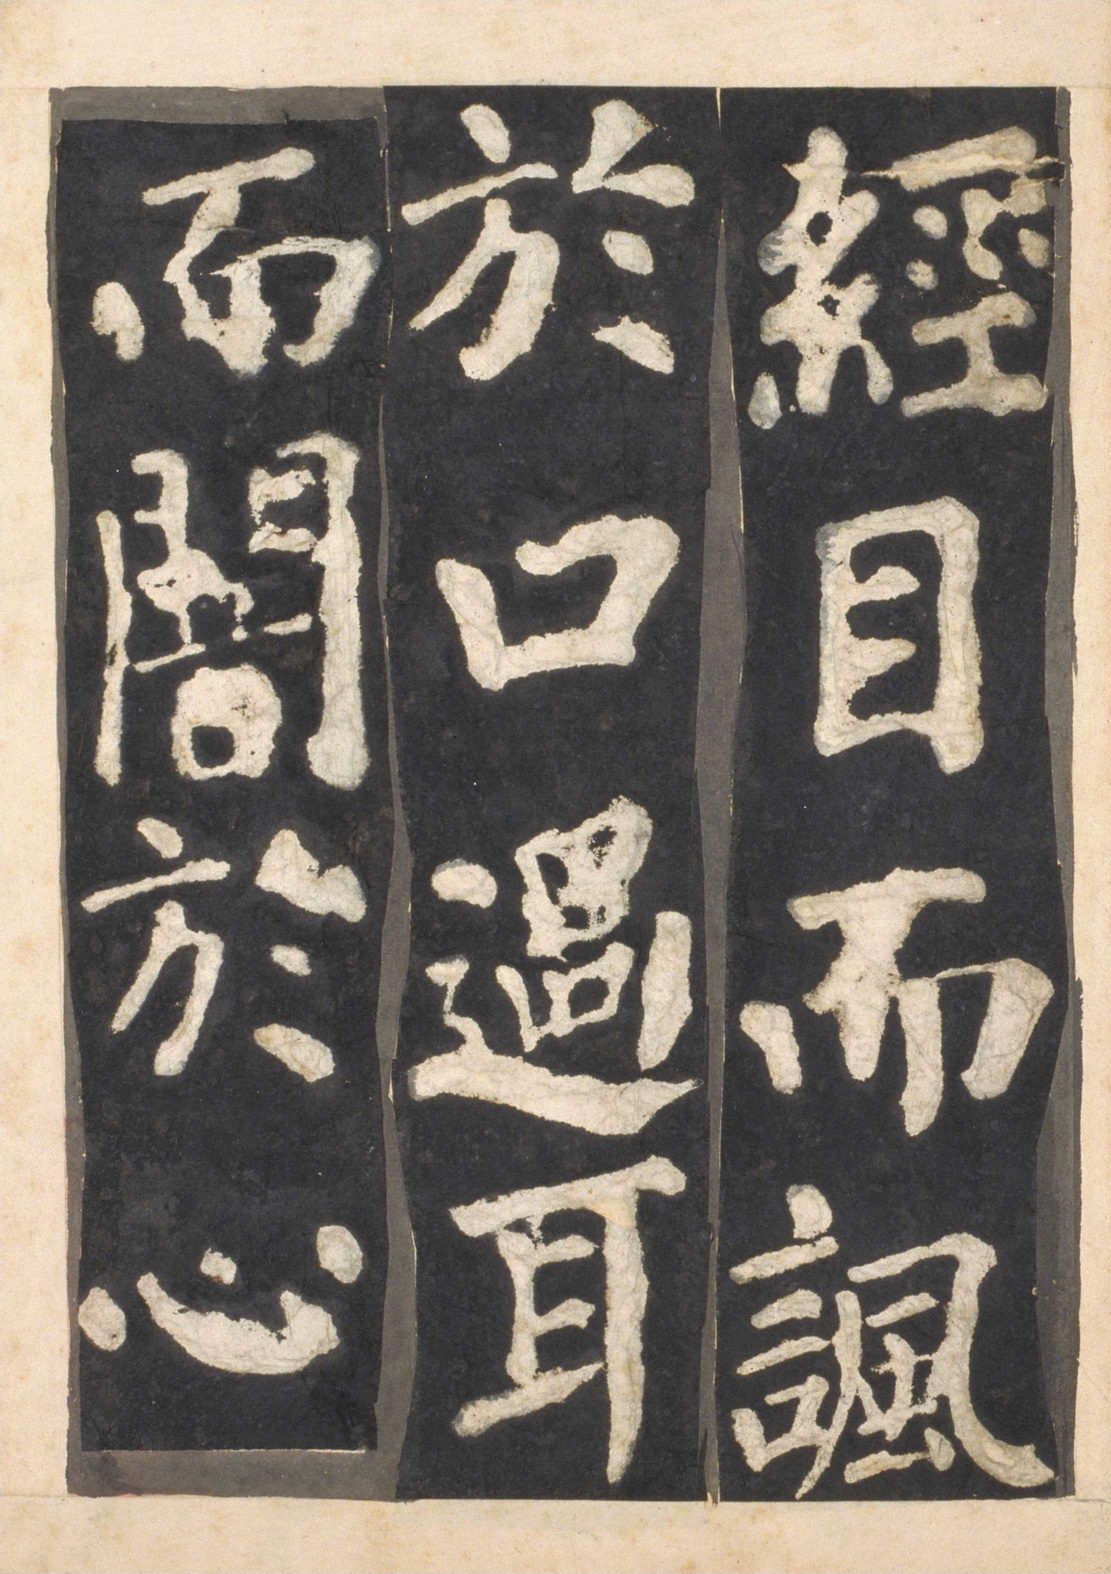 經目而諷
於口過耳
而闇於心